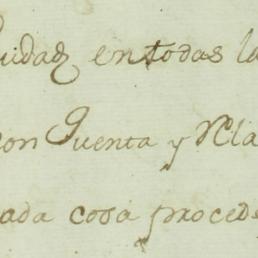 uidad en todas la
con Quenta y Rela
ada cosa procede